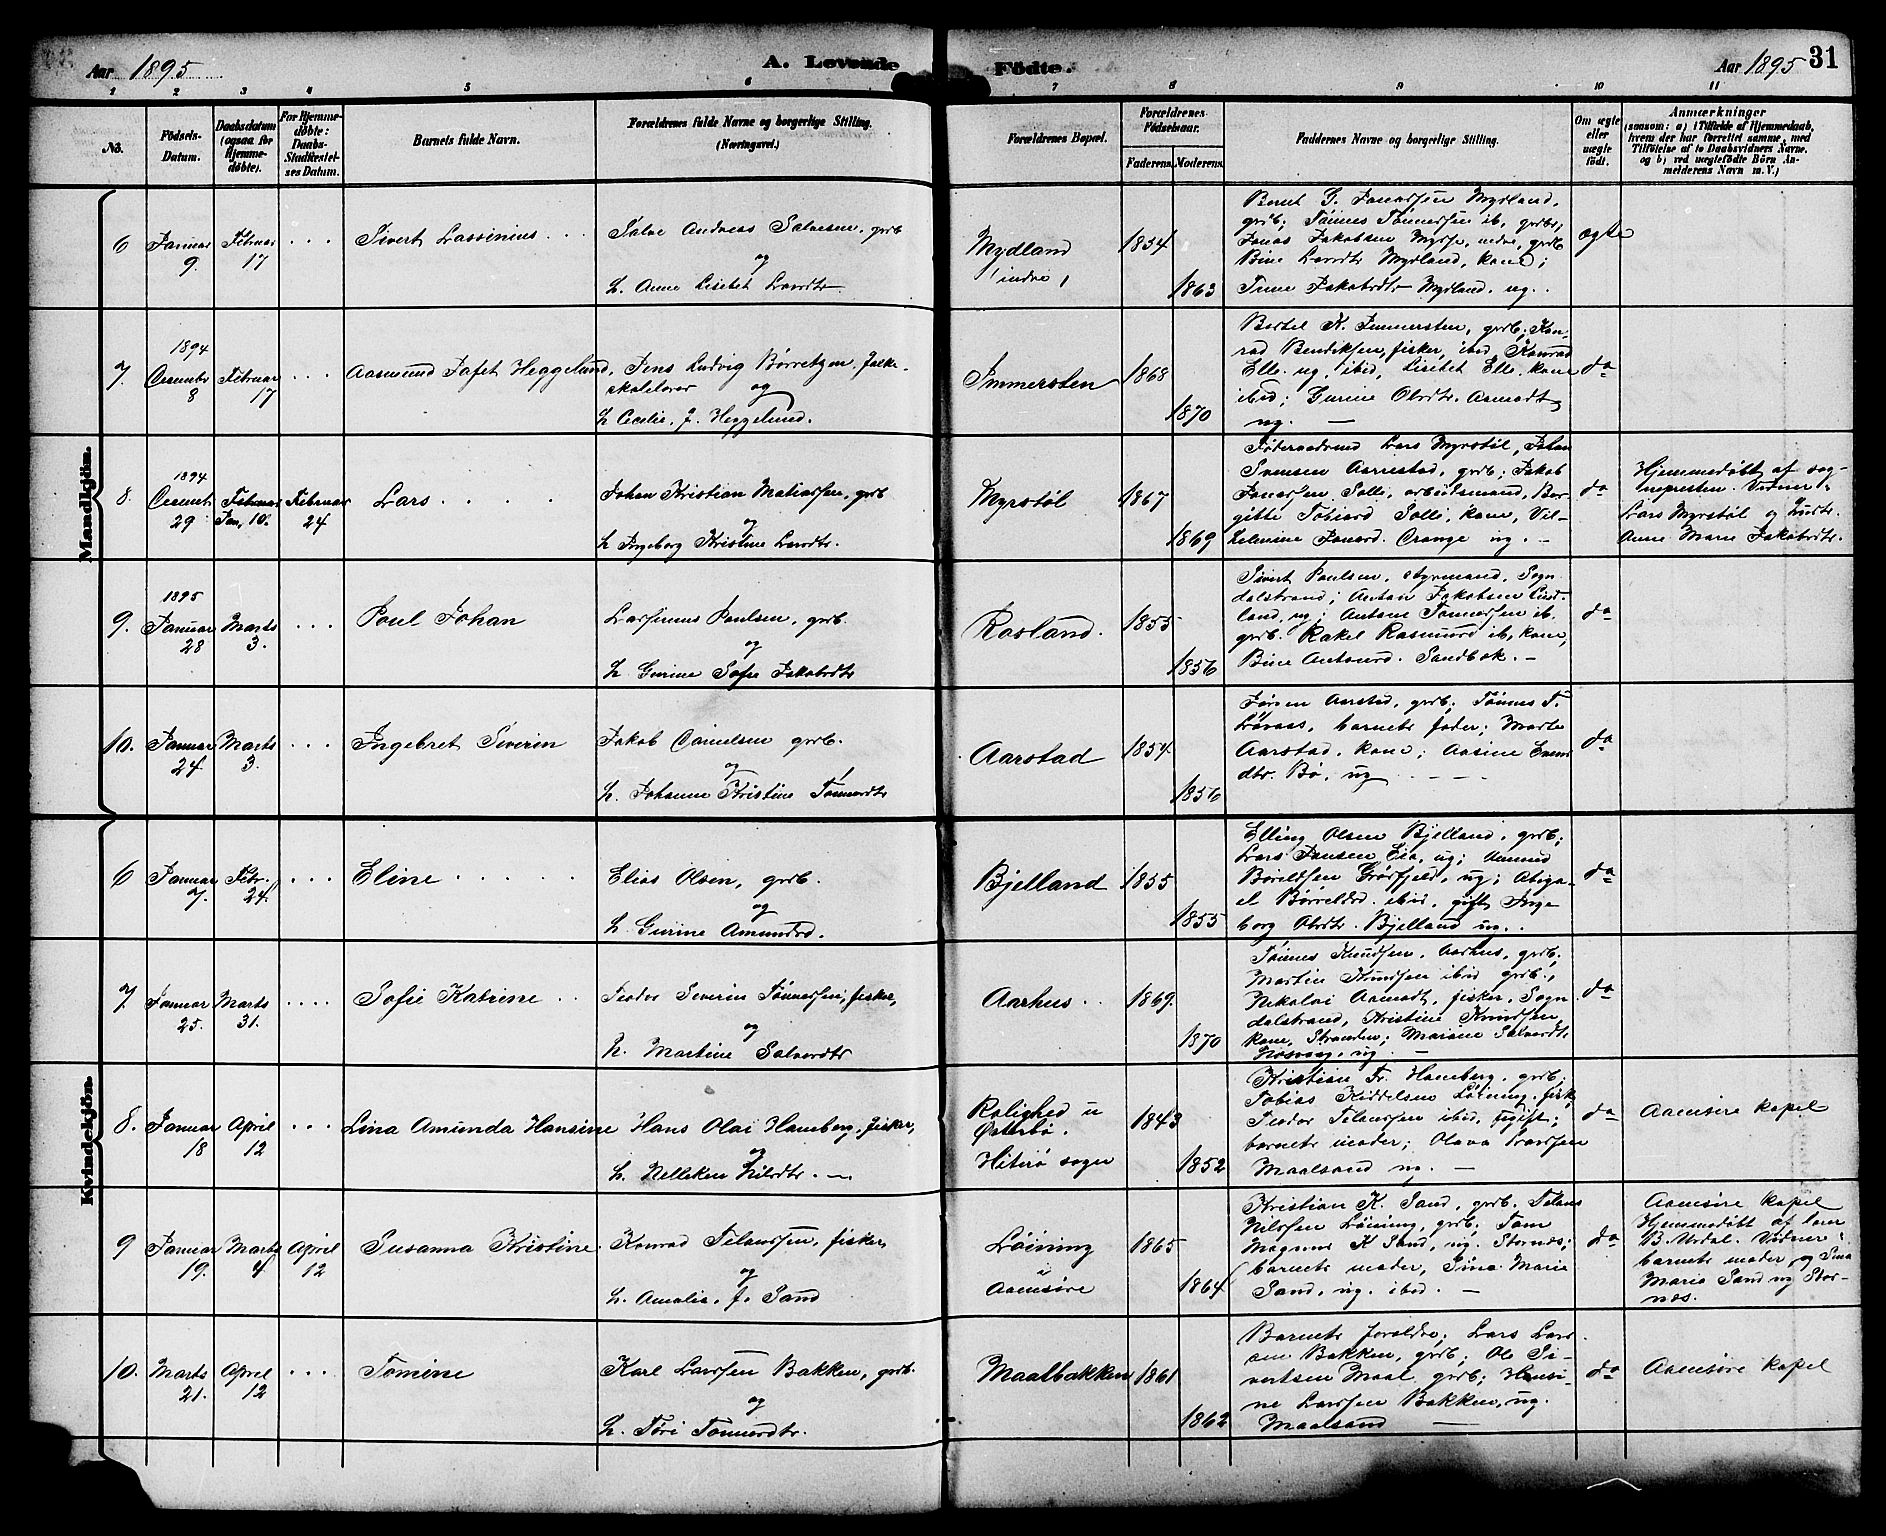 Aar 1895
A. Levende
Fødte.
Aar 1895
31
1 2 3 4 5 6 7 8 9 10 11
No.
Fødsels-
Datum.
Daabsdatum
(ogsaa for
Hjemme-
døbte).
For Hjemme-
døbte:
Daabs-
Stadfæstel-
ses Datum.
Barnets fulde Navn.
Forældrenes fulde Navne og borgerlige Stilling.
(Næringsvei.)
Forældrenes Bopæl.
Forældrenes
Fødselsaar.
Faderens. Moderens.
Faddernes Navne og borgerlige Stilling.
Om ægte
eller
uægte
født.
Anmærkninger
(saasom: a) i Tilfælde af Hjemmedaab,
hvem der har forrettet samme, med
Tilføielse af to Daabsvidners Navne.
og b) ved uægtefødte Børn An-
melderens Navn m. V.)
Mandkjön.
6
Januar
9.
Februar
17
Sivert Lassenius
Salve Andreas Salvesen, grdb
og
h. Anne Lisebet Larsdtr.
Mydland
indre
1854
1863
Bernt G. Jonassen Mydland,
grdb; Tönnes Tönnessen ib, grdbr,
Jonas Jakobsen Mysse, nedre, grdb
Bine Larsdtr Mydland, kone;
Trine Jakobsdtr Mydland. ug.
ægte
7.
1894
Decembr
8
Februar
17
Aasmund Jafet Heggelund,
Jens Ludvig Børretzen, folke-
skolelærer og
h Cecilie, f. Heggelund.
Immersten
1868
1870
Bertel K. Immersten, grdb; Kon-
rad Bendiksen, fisker, ibid, Konrad
Elle. ug. ibid, Lisebet Elle, kone
ibid; Gurine Olsdtr. Aamodt
ug.
do
8.
1894
Decembr
29
Februar
Jan, 10.
Februar
24
Lars
Johan Kristian Matiassen, grdb
og
h Ingeborg Kristine Larsdtr.
Myrstöl
1867
1869
Föderaadsmd Lars Myrstöl, Johan
Svensen Aarrestad, grdb; Jakob
Jonassen Solli, arbeidsmand, Ber-
gitte Tobiasd Solli, kone, Vil-
helmine Jonasd. Orange ug.
do
Hjemmedöbt af sog-
nepresten. Vidner:
Lars Myrstöl og
Anne Marie Jakobsdtr.
9.
1895
Januar
28
Marts
3.
Poul Johan
Larsinus Poulsen, grdb.
og
h. Gurine Sofie Jakobsdtr
Rosland.
1855
1856
Sivert Poulsen, styrmand, Sogn-
dalstrand; Anton Jakobsen
land, ug; Antone Tönnessen ib.
grdb. Rakel Rasmusd ib, kone,
Bine Antonsd. Sandbek.
do
10.
Januar
24.
Marts
3.
Ingebret Severin
Jakob Danielsen grdb.
og
h. Johanne Kristine Tönnesdtr
Aarstad
1854
1856
Jörgen Aarstad, grdb; Tönnes T.
Lövaas, barnets fader; Marte
Aarstad, kone; Aasine Svens-
dtr. Bö, ug
do
Kvindekjön.
6
Januar
7.
Febr.
24.
Eline
Elias Olsen, grdb.
og
h. Gurine Amundsd.
Bjelland
1855
1855
Elling Olsen Bjelland, grdb;
Lars Jensen Eia, ug; Amund
Börildsen Grösfjeld, ug; Abiga-
el Börreldsd. ibid, gift, Inge-
borg Olsdtr. Bjelland ug.
do
7.
Januar
25.
Marts
31.
Sofie Katrine
Teodor Severin Tönnessen, fisker,
og
h. Martine Salvesdtr
Aarhus
1869.
1870
Tönnes Knudsen, Aarhus, grdb,
Martin Knudsen ibid grdb.,
Nikolai Aamodt, fisker, Sogn-
dalstrand, Kristine Knudsen,
kone, Stranden; Mariane Salvesdtr
ug.
do
8.
Januar
18
April
12
Lina Amunda Hansine
Hans Olai Hamberg, fisker,
og
h. Nelleken Nilsdtr.
Rolighed u
Österbö.
Hiterö sogn
1843
1852
Kristian Fr. Hamberg, grdb;
Tobias Kiddelsen Löining, fisk,
Teodor Telanssen ibid, ugift;
barnets moder; Olava Larssen
Maalsand ug.
do
Aamsöre kapel
9
Januar
19.
Marts
4
April
12
Susanna Kristine
Konrad Telanssen, fisker
og
h. Amalie, f. Sand
Löining
i
Aamsöre
1865
1864
Kristian K. Sand, grdb. Telans
Nilssen Löining, grdb; Tom
Magnus K Sand, ug. Stornæs;
barnets moder, Sina Marie
Sand, ug. ibid.
do
Aamsöre kapel
Hjemmedöbt af Tom
B. Urdal. Vidner:
barnets moder og Sina
Marie Sand ug Stor-
næs.
10.
Marts
21.
April
12
Tomine
Karl Larssen Bakken, grdb.
og
h. Töri Tönnesdtr.
Maalbakken
1861
1862
Barnets foreldre; Lars Lars-
sen Bakken, grdb; Ole Si-
vertsen Maal grdb; Hansi-
ne Larssen Bakken, ug.
Maalsand
do
Aamsöre kapel